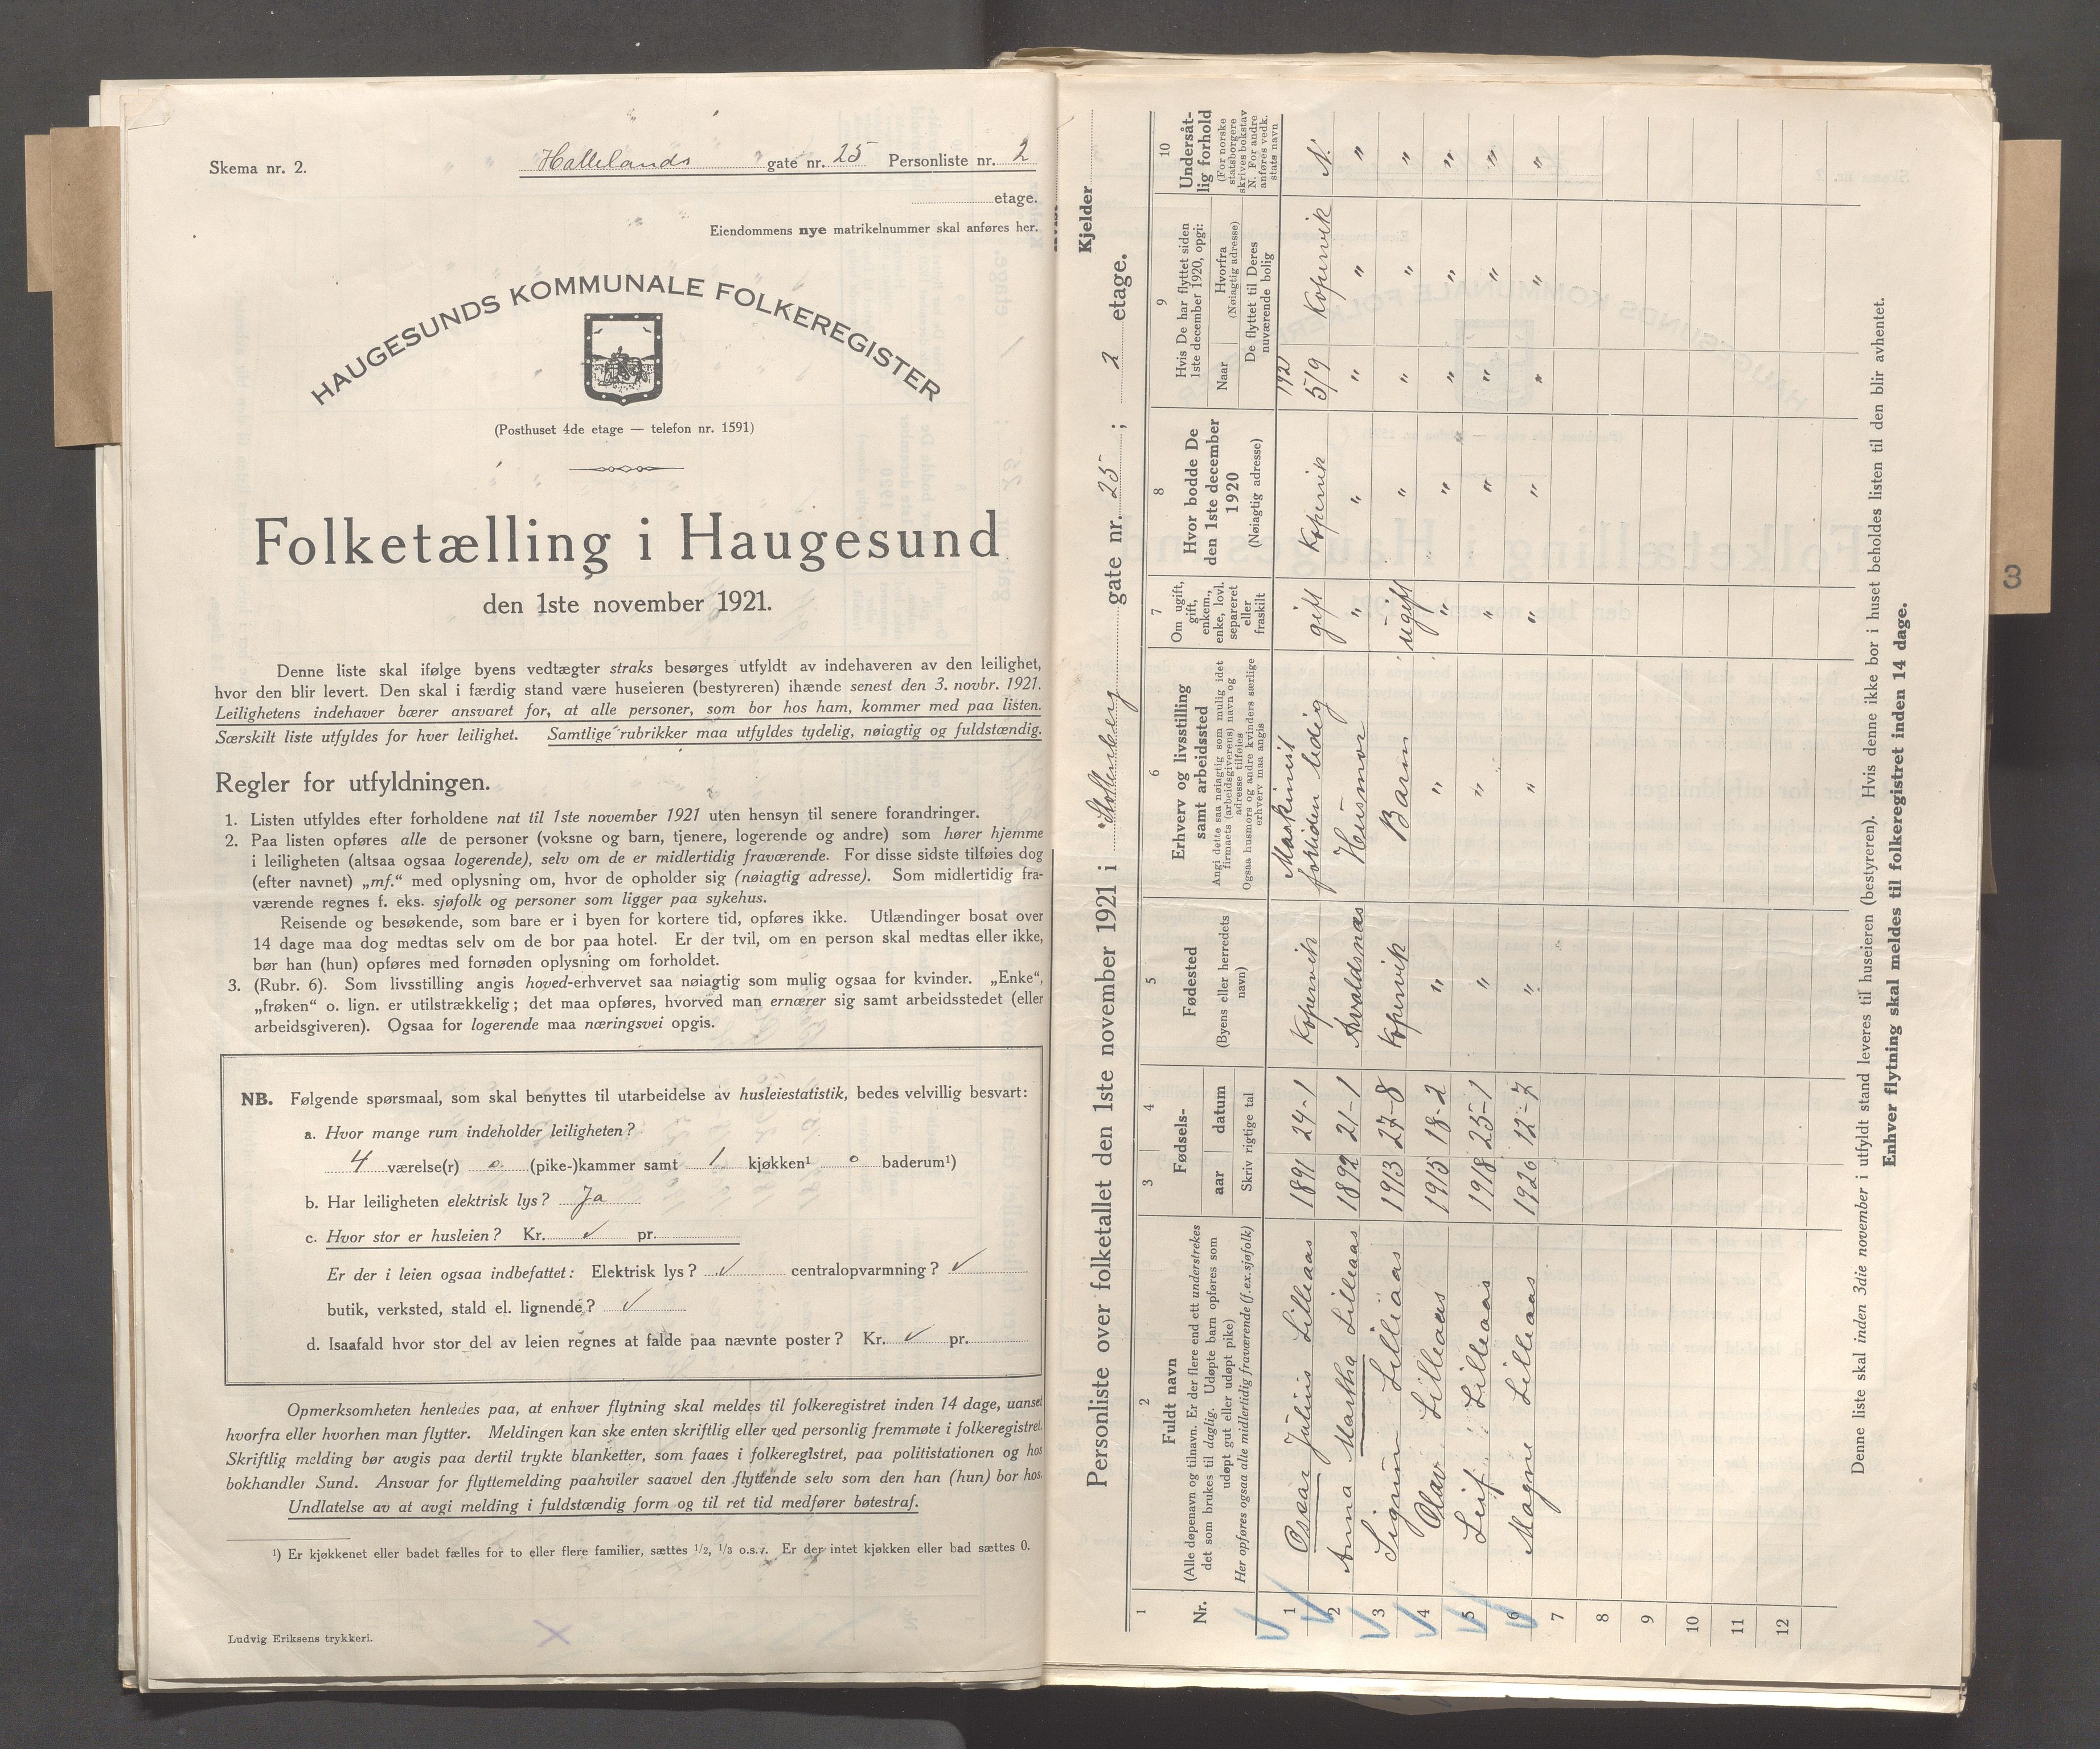 Skema nr. 2.
Hallelands gate nr. 25 Personliste nr. 2
etage.
Eiendommens nye matrikelnummer skal anføres her.
HAUGESUNDS KOMMUNALE FOLKEREGISTER
(Posthuset 4de etage — telefon nr. 1591)
Folketælling i Haugesund
den 1ste november 1921.
Denne liste skal ifølge byens vedtægter straks besørges utfyldt av indehaveren av den leilighet,
hvor den blir levert. Den skal i færdig stand være huseieren (bestyreren) ihænde senest den 3. novbr. 1921.
Leilighetens indehaver bærer ansvaret for, at alle personer, som bor hos ham, kommer med paa listen.
Særskilt liste utfyldes for hver leilighet. Samtlige rubrikker maa utfyldes tydelig, nøiagtig og fuldstændig.
Regler for utfyldningen.
1. Listen utfyldes efter forholdene nat til 1ste november 1921 uten hensyn til senere forandringer.
2. Paa listen opføres alle de personer (voksne og barn, tjenere, logerende og andre) som hører hjemme
i leiligheten (altsaa ogsaa logerende), selv om de er midlertidig fraværende. For disse sidste tilføies dog
(efter navnet) „mf.“ med oplysning om, hvor de opholder sig (nøiagtig adresse). Som midlertidig fra-
værende regnes f. eks. sjøfolk og personer som ligger paa sykehus.
Reisende og besøkende, som bare er i byen for kortere tid, opføres ikke. Utlændinger bosat over
14 dage maa dog medtas selv om de bor paa hotel. Er der tvil, om en person skal medtas eller ikke,
bør han (hun) opføres med fornøden oplysning om forholdet.
3. (Rubr. 6). Som livsstilling angis hoved-erhvervet saa nøiagtig som mulig ogsaa for kvinder. „Enke“,
„frøken“ o. lign. er utilstrækkelig; det maa opføres, hvorved man ernærer sig samt arbeidsstedet (eller
arbeidsgiveren). Ogsaa for logerende maa næringsvei opgis.
NB. Følgende spørsmaal, som skal benyttes til utarbeidelse av husleiestatistik, bedes velvillig besvart:
a. Hvor mange rum indeholder leiligheten?
4 værelse(r) o (pike-)kammer samt 1 kjøkken¹ o baderum¹)
b. Har leiligheten elektrisk lys? Ja
c. Hvor stor er husleien? Kr. ✓ pr.
Er der i leien ogsaa indbefattet: Elektrisk lys? ✓ centralopvarmning? ✓
butik, verksted, stald el. lignende? ✓
d. Isaafald hvor stor del av leien regnes at falde paa nævnte poster? Kr. ✓ pr.
Opmerksomheten henledes paa, at enhver flytning skal meldes til folkeregistret inden 14 dage, uanset
hvorfra eller hvorhen man flytter. Meldingen kan ske enten skriftlig eller ved personlig fremmøte i folkeregistret.
Skriftlig melding bør avgis paa dertil trykte blanketter, som faaes i folkeregistret, paa politistationen og hos
bokhandler Sund. Ansvar for flyttemelding paahviler saavel den flyttende selv som den han (hun) bor hos.
Undlatelse av at avgi melding i fuldstændig form og til ret tid medfører bøtestraf.
¹) Er kjøkkenet eller badet fælles for to eller flere familier, sættes 1/2, 1/3 o.s.v. Er der intet kjøkken eller bad sættes 0.
Ludvig Eriksens trykkeri.
Kjelder
Personliste over folketallet den 1ste november 1921 i Stoltenberg gate nr. 25; 2 etage.
1 2 3 4 5 6 7 8 9 10
Nr.
Fuldt navn
(Alle døpenavn og tilnavn. Er der flere end ett understrekes
det som brukes til daglig. Udøpte barn opføres som
udøpt gut eller udøpt pike)
Her opføres ogsaa alle midlertidig fraværende (f. ex. sjøfolk)
Fødsels-
aar datum
Skriv rigtige tal
Fødested
(Byens eller herredets
navn)
Erhverv og livsstilling
samt arbeidssted
Angi dette saa nøiagtig som mulig idet
firmaets (arbeidsgiverens) navn og
adresse tilføies
Ogsaa husmors og andre kvinders særlige
erhverv maa angis
Om ugift,
gift,
enkem.,
enke, lovl.
separeret
eller
fraskilt
Hvor bodde De
den 1ste december
1920
(Nøiagtig adresse)
Hvis De har flyttet siden
1ste december 1920, opgi:
Naar Hvorfra
(Nøiagtig adresse)
De flyttet til Deres
nuværende bolig
Undersåt-
lig forhold
(For norske
statsborgere
skrives bokstav
N. For andre
anføres vedk.
stats navn
1 Oscar Julius Lilleaas 1891 24-1 Kopervik Maskinist fortiden ledig gift Kopervik 1921 5/9 Kopervik N.
2 Anna Martha Lilleaas 1892 21-1 Avaldsnæs Husmor " " " " "
3 Sigrun Lilleaas 1913 27-8 Kopervik Barn ugift " " " "
4 Olav Lilleaas 1915 18-2 " " " " " " "
5 Leif Lilleaas 1918 25-1 " " " " " " "
6 Magne Lilleaas 1920 12-7 " " " " " " "
7
8
9
10
11
12
Denne liste skal inden 3die november i utfyldt stand leveres til huseieren (bestyreren). Hvis denne ikke bor i huset beholdes listen til den blir avhentet.
Enhver flytning skal meldes til folkeregistret inden 14 dage.
3